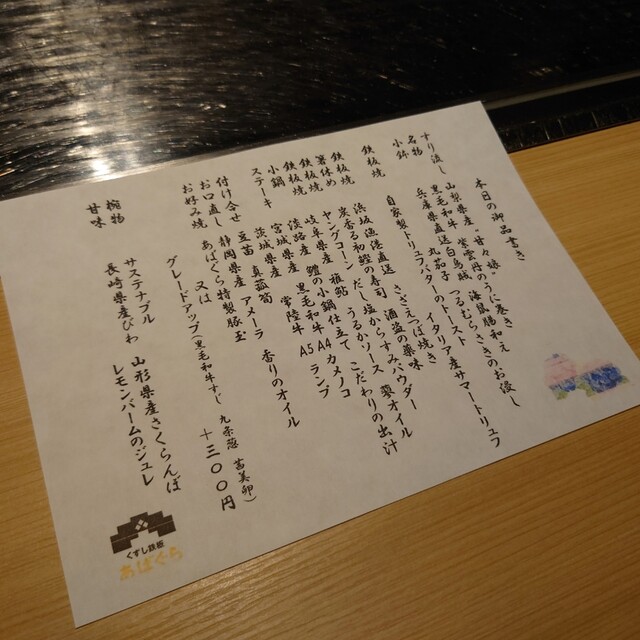 本日の御品書き
すり流し 山梨県産 甘々娘
名物 黒毛和牛 紫雲丹のうに巻き 海鼠腸和え
小鉢 兵庫県直送白馬瓜 つるむらさきのお浸し
丸茄子のトースト イタリア産サマートリュフ
自家製トリュフバター
鉄板焼 浜坂漁港直送 さざえつぼ焼き
鉄板焼 炭香る初鰹の寿司 酒盗の薬味 蓼オイル
箸休め ヤングコーン だし塩からすみパウダー
鉄板焼 岐阜県産 稚鮎 うるかソース
鉄板焼 淡路産 鱧の小鍋仕立て こだわりの出汁
小鍋 宮城県産 黒毛和牛 A4 カメノコ
ステーキ 茨城県産 常陸牛 A5 ランプ
豆苗 真菰筍
付け合せ 静岡県産 アメーラ 香りのオイル
お口直し あばぐら特製豚玉
お好み焼 又は
グレードアップ(黒毛和牛すじ 九条葱 茜美卵)
+300円
椀物 サステナブル 山形県産さくらんぼ
甘味 長崎県産びわ レモンバームのジュレ
くずし鉄板
あばぐら